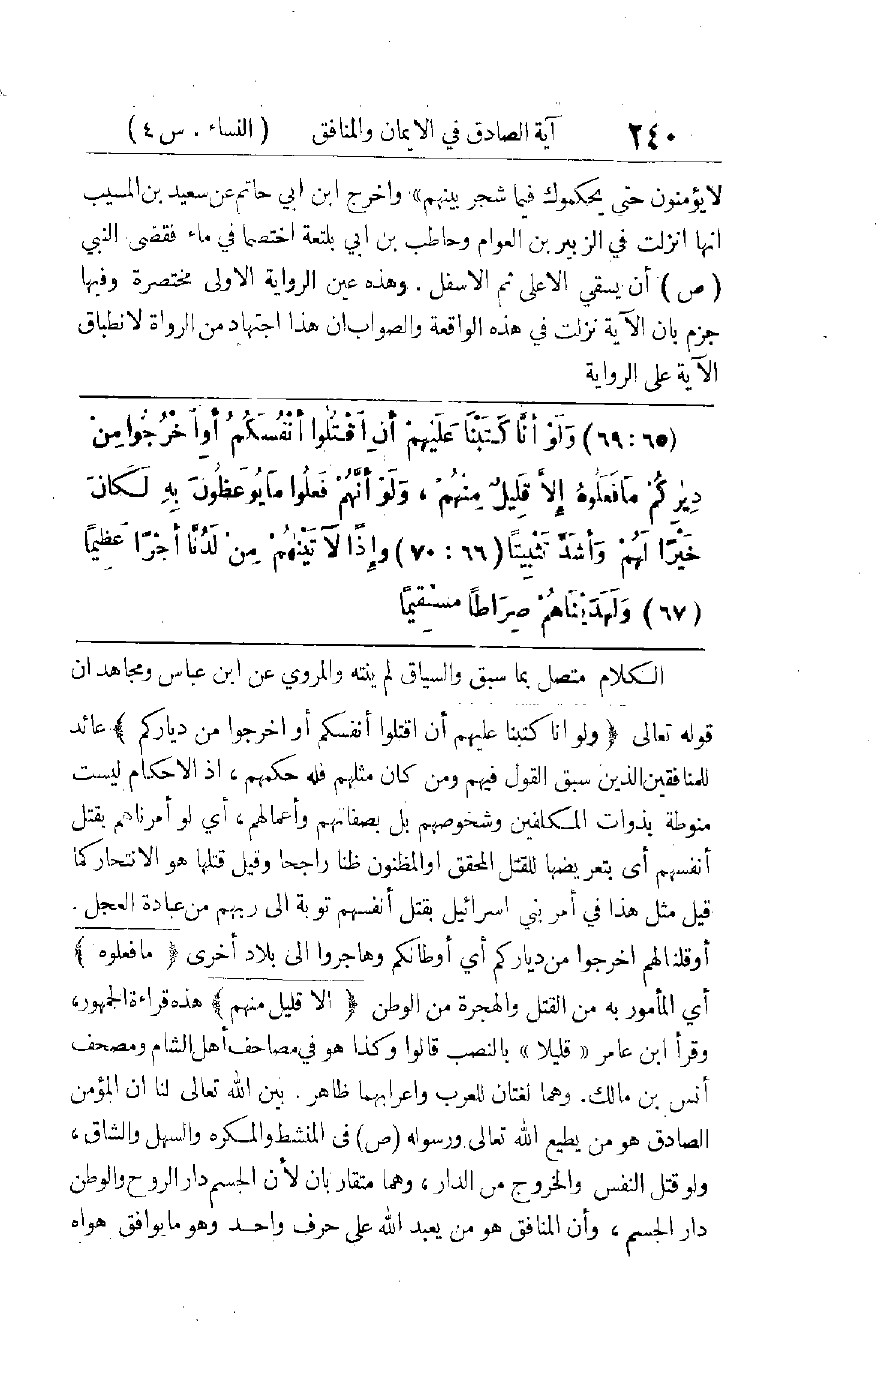 ٢٤٠ آية الصادق في الايمان والمنافق (النساء . س ٤)
لايؤمنون حتى يحكموك فيما شجر بينهم» واخرج ابن ابي حاتم عن سعيد بن المسيب
انها انزلت في الزبير بن العوام وحاطب بن ابي بلتعة اختصما في ماء فقضى النبي
(ص) أن يسقي الاعلى ثم الاسفل . وهذه عين الرواية الاولى مختصرة وفيها
جزم بان الآية نزلت في هذه الواقعة والصواب ان هذا اجتهاد من الرواة لانطباق
الآية على الرواية
(٦٩:٦٥) وَلَوْ أَنَّا كَتَبْنَا عَلَيهِمْ أَنِ اقْتُلُوا أَنْفُسَكُمْ أَوِ اخْرُجُوا مِنْ
دِيٰرِكُمْ مَافَعَلُوهُ إِلاَّ قَلِيلٌ مِنْهُمْ ، وَلَوْ أَنَّهُمْ فَعَلُوا مَايُوعَظُونَ بِهِ لَكَانَ
خَيْرًا لَهُمْ وَأَشَدَّ تَثْبِيتًا (٦٦ : ٧٠) وإِذًا لآتَيْنٰهُمْ مِنْ لَدُنَّا أَجْرًا عَظِيمًا
(٦٧) وَلَهَدَيْنَاهُمْ صِرَاطًا مسْتَقِيمًا
الكلام متصل بما سبق والسياق لم ينته والمروي عن ابن عباس ومجاهد ان
قوله تعالى ﴿ ولو انا كتبنا عليهم أن اقتلوا أنفسكم أو اخرجوا من دياركم ﴾ عائد
للمنافقين الذين سبق القول فيهم ومن كان مثلهم فله حكمهم ، اذ الاحكام ليست
منوطة بذوات المكلفين وشخوصهم بل بصفاتهم وأعمالهم ، أي لو أمرناهم بقتل
أنفسهم أى بتعريضها للقتل المحقق او المظنون ظنا راجحا وقيل قتلها هو الانتحار كما
قيل مثل هذا في أمر بني اسرائيل بقتل أنفسهم توبة الى ربهم من عبادة العجل .
أو قلنا لهم اخرجوا من دياركم أي أوطانكم وهاجروا الى بلاد أخرى ﴿ مافعلوه ﴾
أي المأمور به من القتل والهجرة من الوطن ﴿ الا قليل منهم ﴾ هذه قراءة الجمهور،
وقرأ ابن عامر « قليلا » بالنصب قالوا وكذا هو في مصاحف أهل الشام ومصحف
أنس بن مالك. وهما لغتان للعرب واعرابهما ظاهر . بين الله تعالى لنا ان المؤمن
الصادق هو من يطيع الله تعالى ورسوله (ص) فى المنشط والمكره والسهل والشاق ،
ولو قتل النفس والخروج من الدار ، وهما متقاربان لأن الجسم دار الروح والوطن
دار الجسم ، وأن المنافق هو من يعبد الله على حرف واحد وهو مايوافق هواه